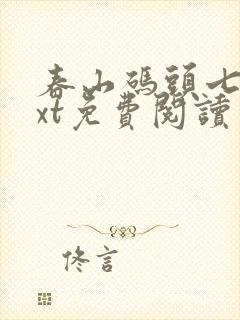 春山碼頭七
xt免費閱讀
佟言